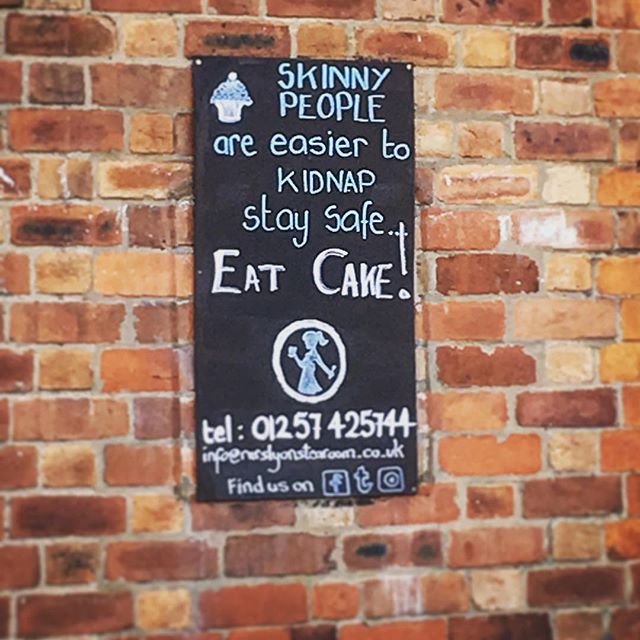 SKINNY
PEOPLE
are easier to
KIDNAP
stay safe..
EAT CAKE!
tel: 01257 425744
Find us on